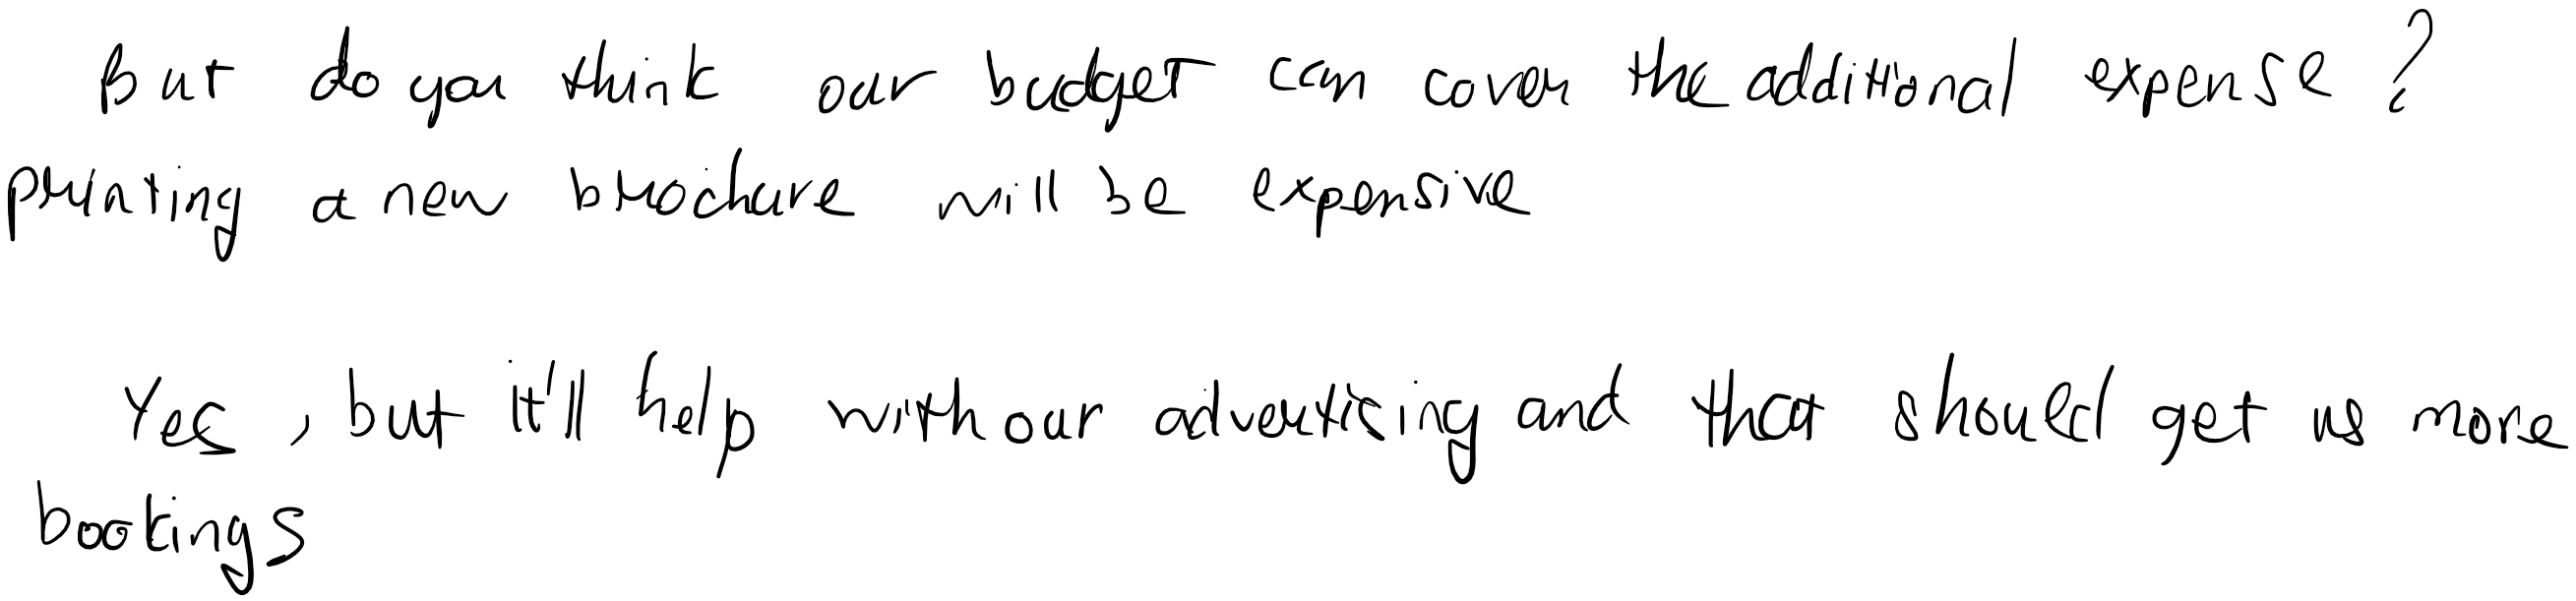 But do you think our budget can cover the additional expense?
printing a new brochure will be expensive
Yes, but it'll help with our advertising and that should get us more
bookings